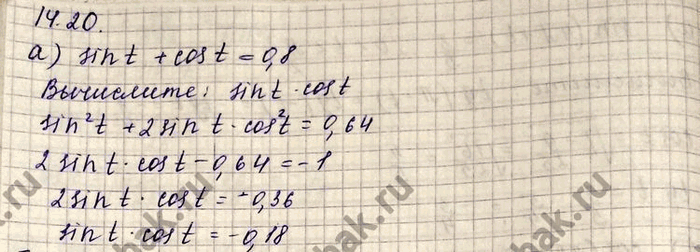 14.20.
а) sin t + cos t = 0,8
Вычислите: sin t · cos t
sin²t + 2 sin t · cos²t = 0,64
2 sin t · cos t – 0,64 = –1
2 sin t · cos t = –0,36
sin t · cos t = –0,18